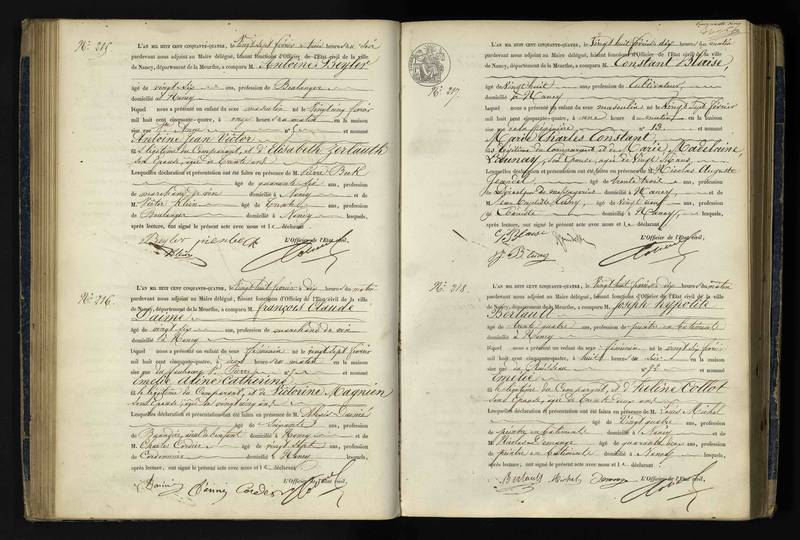 N.º 215.
L'AN MIL HUIT CENT CINQUANTE-QUATRE, le Vingt sept février à trois heures du soir
pardevant nous adjoint au Maire délégué, faisant fonctions d'Officier de l'Etat civil de la ville
de Nancy, département de la Meurthe, a comparu M. Antoine Beyler
âgé de vingt six ans, profession de Boulanger
domicilié à Nancy
Lequel nous a présenté un enfant du sexe masculin né le Vingt cinq février
mil huit cent cinquante-quatre, à onze heures du matin en la maison
sise rue et nommé
Antoine Jean Victor
fils légitime du Comparant, et d'Elisabeth Zertauth
son Epouse, âgée de trente
Lesquelles déclaration et présentation ont été faites en présence de M. Pierre Bick
âgé de quarante six ans, profession
de marchand de vin domicilié à Nancy et de
M. Victor Klein âgé de trente ans, profession
de Boulanger domicilié à Nancy lesquels,
après lecture, ont signé le présent acte avec nous et le déclarant
Beyler pierre bick L'Officier de l'Etat civil,
Klein
N.º 216.
L'AN MIL HUIT CENT CINQUANTE-QUATRE, le Vingt huit février à dix heures du matin
pardevant nous adjoint au Maire délégué, faisant fonctions d'Officier de l'Etat civil de la ville
de Nancy, département de la Meurthe, a comparu M. françois Claude
Daime
âgé de vingt six ans, profession de marchand de vin
domicilié à Nancy
Lequel nous a présenté un enfant du sexe féminin né le vingt sept février
mil huit cent cinquante-quatre, à heures du matin en la maison
sise rue du faubourg St. Pierre n.º et nommé
Emélie Adine Catherine
fille légitime du Comparant, et de Victorine Magnien
son Epouse, âgée de vingt cinq ans
Lesquelles déclaration et présentation ont été faites en présence de M. Alexis
âgé de ans, profession
de domicilié à Nancy et de
M. Charles Cordier âgé de vingt sept ans, profession
de Cordonnier domicilié à Nancy lesquels,
après lecture, ont signé le présent acte avec nous et le déclarant
L'Officier de l'Etat civil,
Cordier
N.º 217.
L'AN MIL HUIT CENT CINQUANTE-QUATRE, le Vingt huit février à dix heures du matin
pardevant nous adjoint au Maire délégué, faisant fonctions d'Officier de l'Etat civil de la ville
de Nancy, département de la Meurthe, a comparu M. Constant Blaise
âgé de Vingt huit ans, profession de Cultivateur
domicilié à Nancy
Lequel nous a présenté un enfant du sexe masculin né le Vingt sept février
mil huit cent cinquante-quatre, à une heure du matin en la maison
sise rue de la pépinière n.º 13 et nommé
Marie Charles Constant
fils légitime du Comparant, et de Marie Madeleine
Launay, son Epouse, âgée de Vingt ans
Lesquelles déclaration et présentation ont été faites en présence de M. Nicolas Auguste
âgé de trente trois ans, profession
de domicilié à Nancy, et de
M. Jean Baptiste âgé de Vingt neuf ans, profession
de domicilié à Nancy, lesquels,
après lecture, ont signé le présent acte avec nous et le déclarant
C. Blaise L'Officier de l'Etat civil,
N.º 218.
L'AN MIL HUIT CENT CINQUANTE-QUATRE, le Vingt huit février à dix heures du matin
pardevant nous adjoint au Maire délégué, faisant fonctions d'Officier de l'Etat civil de la ville
de Nancy, département de la Meurthe, a comparu M. Joseph hyppolite
Bertault
âgé de trente quatre ans, profession de peintre en batiments
domicilié à Nancy
Lequel nous a présenté un enfant du sexe féminin né le vingt six février
mil huit cent cinquante-quatre, à huit heures du soir en la maison
sise rue du Ruisseau n.º et nommé
Emélie
fille légitime du Comparant, et d'Hélène Collot
son Epouse, âgée de trente cinq ans
Lesquelles déclaration et présentation ont été faites en présence de M. Louis Michel
âgé de Vingt quatre ans, profession
de peintre en batiments domicilié à Nancy et de
M. Nicolas âgé de quarante deux ans, profession
de peintre en batiments domicilié à Nancy lesquels,
après lecture, ont signé le présent acte avec nous et le déclarant
L'Officier de l'Etat civil,
Bertault Michel